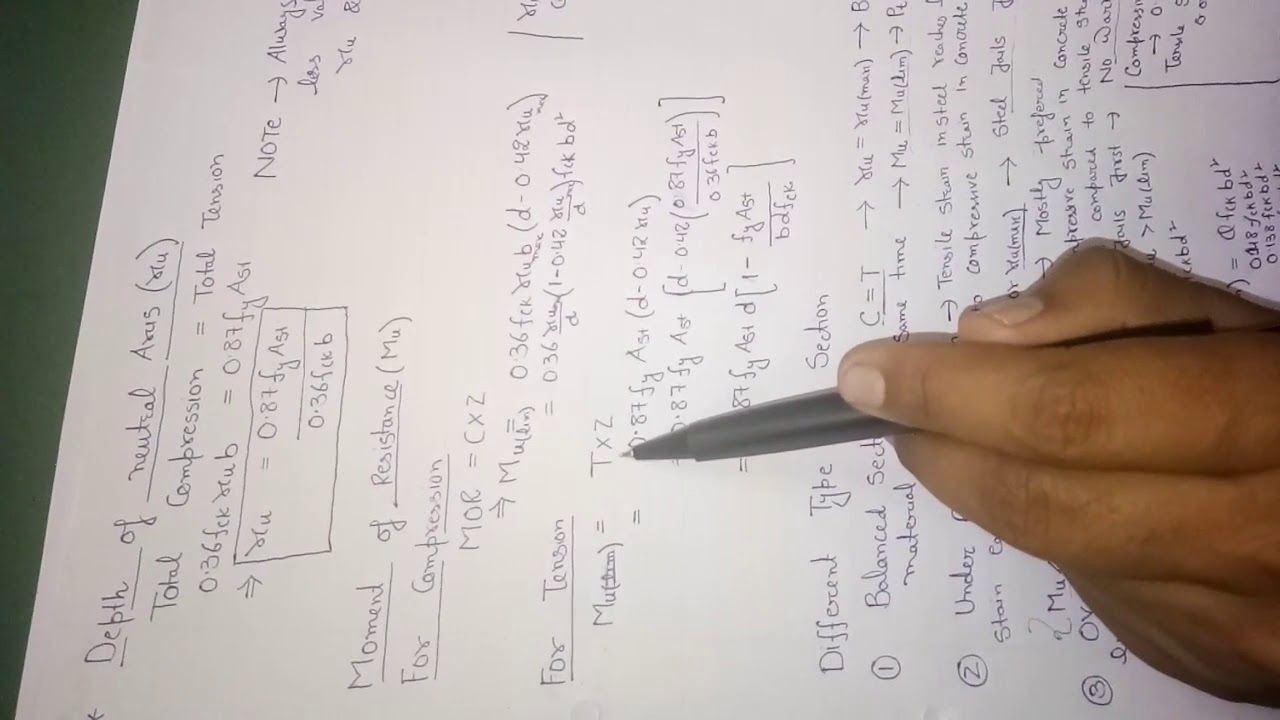 Depth of neutral Axis (xu)
Total Compression = Total Tension
0.36fck xub = 0.87fyAst
⇒ xu = 0.87fyAst / 0.36fckb
NOTE → Always
less val
xu &
Moment of Resistance (Mu)
For Compression
MOR = C×Z
⇒ Mu(lim) = 0.36fck xumax b (d-0.42xumax)
= 0.36 xumax/d (1-0.42 xumax/d) fck bd²
For Tension
Mu = T×Z
= 0.87fyAst (d-0.42xu)
= 0.87fyAst [d-0.42(0.87fyAst / 0.36fckb)]
= 0.87fyAst d [1 - fyAst / bdfck]
Different Type Section
① Balanced Sect C=T → xu = xu(max) → B
material same time → Mu = Mu(lim) → Pt
② Under → Tensile strain in steel reaches
Stain compressive strain in concrete
or xu(max) → Steel fails
Mu → Mostly prefered
③ Ov compressive strain in concrete
compared to tensile ste
fails first → No Warn
> Mu(lim)
fckbd²
Compressi
→ 0.
Tensile S
= Qfckbd²
0.148fckbd²
0.138fckbd²